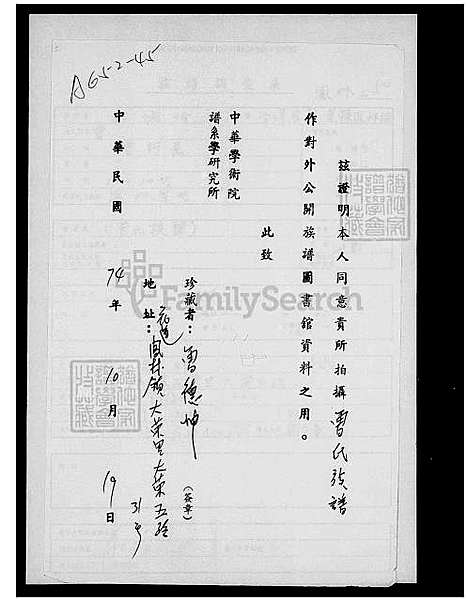 A652-45
茲證明本人同意貴所拍攝曾氏族譜
作對外公開族譜圖書館資料之用。
此致
中華學術院
譜系學研究所
珍藏者：曾德坤
(簽章)
地址：花蓮鳳林鎮大榮里大榮五路
31号
中華民國74年10月19日
FamilySearch